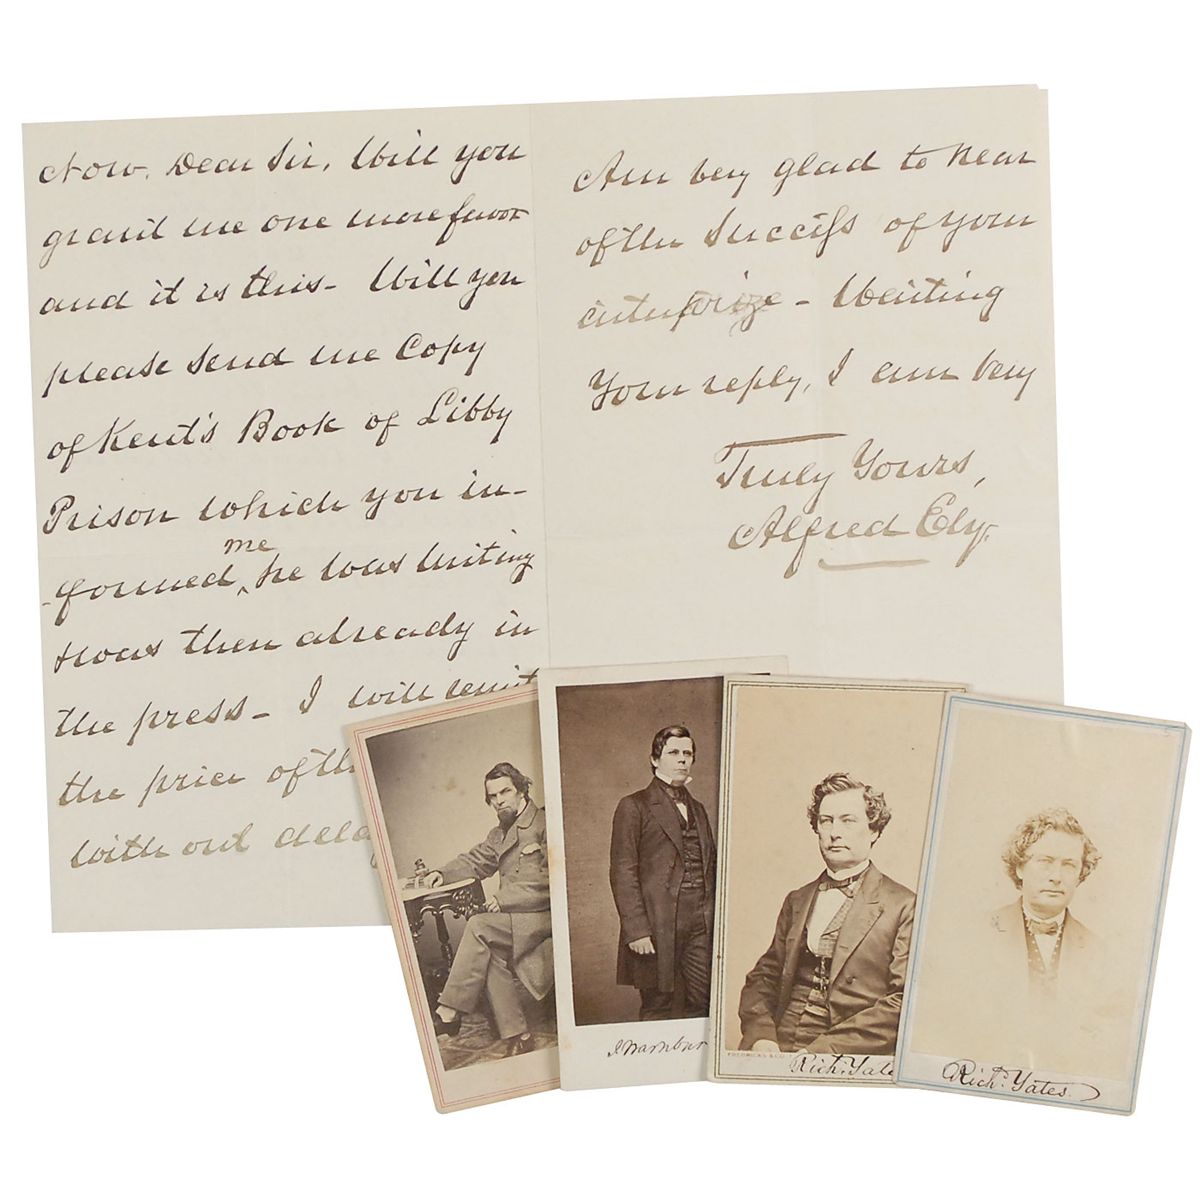 Now, Dear Sir, Will you
grant me one more favor
and it is this - Will you
please send me Copy
of Kent's Book of Libby
Prison which you in-
-formed me he was writing
& was then already in
the press - I will remit
the price of th
with out delay
Am very glad to hear
of the Success of your
enterprize - Waiting
Your reply, I am very
Truly Yours,
Alfred Ely.
FREDRICKS & CO
Rich. Yate
Richd. Yates.